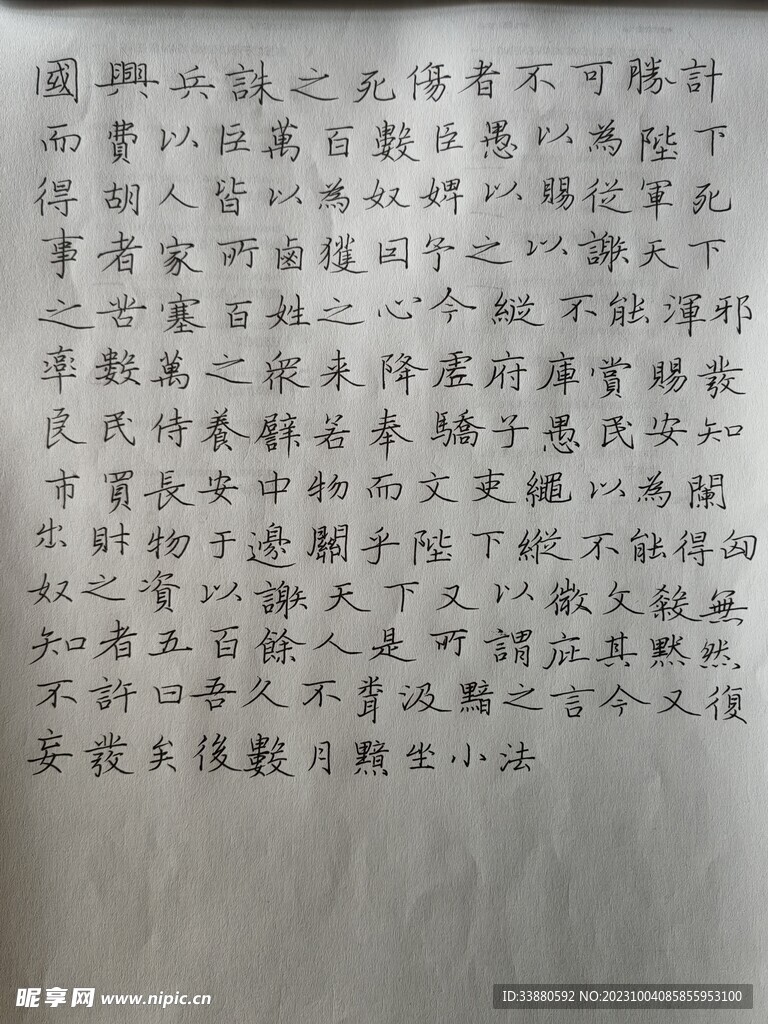 國興兵誅之死傷者不可勝計
而費以臣萬百數臣愚以為陛下
得胡人皆以為奴婢以賜從軍死
事者家所鹵獲因予之以謝天下
之苦塞百姓之心今縱不能渾邪
率數萬之眾来降虛府庫賞賜發
良民侍養譬若奉驕子愚民安知
市買長安中物而文吏繩以為闌
出財物于邊關乎陛下縱不能得匈
奴之資以謝天下又以微文殺無
知者五百餘人是所謂庇其
默然
不許曰吾久不聞汲黯之言今又復
妄發矣後數月黯坐小法
昵享网 www.nipic.cn
ID:33880592 NO:20231004085855953100